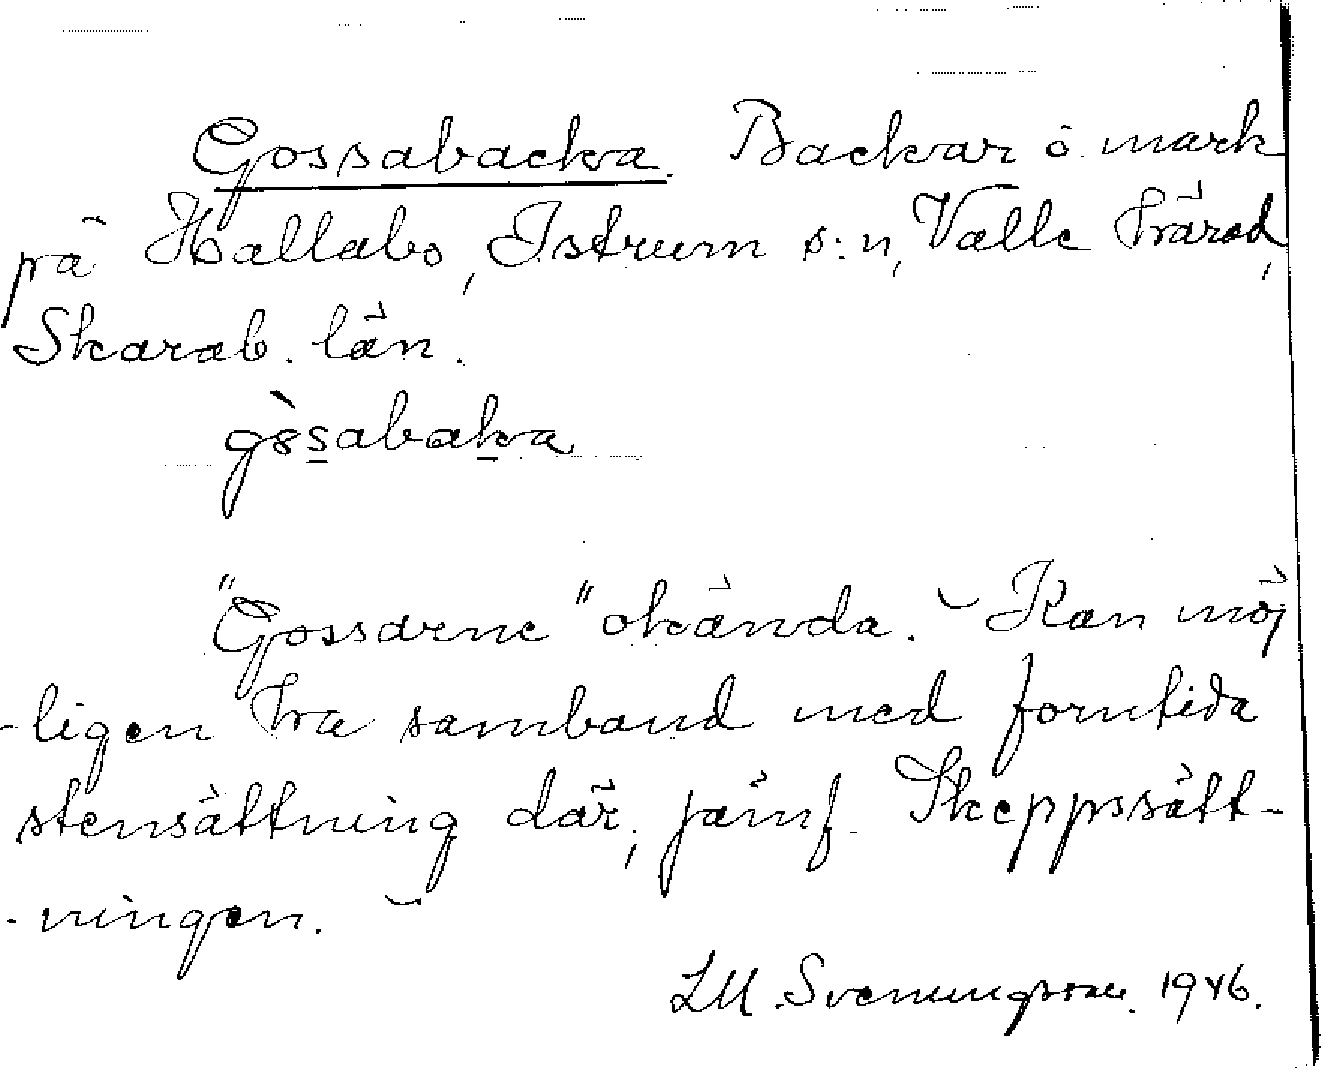 Gossabacka. Backar o. mark
på Hallabo, Istrum s:n, Valle härad,
Skarab. län.
"Gossarne" okända. – Kan möj
-ligen ha samband med forntida
stensättning där, jämf. Skeppssätt-
-ningen. –
LM. Svenungsson. 1946.